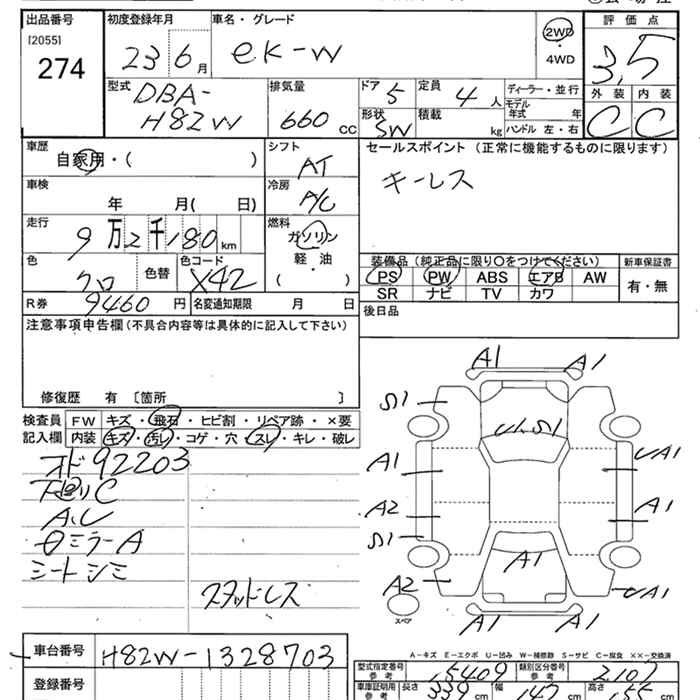 出品番号
[2055]
274
初度登録年月
23 6月
車名・グレード
eK-W
2WD
・
4WD
評価点
3.5
外装 内装
C C
型式
DBA-
H82W
排気量
660 CC
ドア 5
定員 4人
形状 SW
積載 kg
ディーラー・並行
モデル年式 年
ハンドル 左・右
車歴
自家用・( )
シフト
AT
セールスポイント (正常に機能するものに限ります)
キーレス
車検
年 月( 日)
冷房
A/C
走行
9万2千180km
燃料
ガソリン
軽・油
・
( )
色
クロ
色替
色コード
X42
装備品 (純正品に限り〇をつけてください)
PS PW ABS エアB AW
SR ナビ TV カワ
新車保証書
有・無
R券 9460円
名変通知期限 月 日
後日品
注意事項申告欄 (不具合内容等は具体的に記入して下さい)
修復歴 有 〔箇所 〕
検査員
記入欄
FW キズ・飛石・ヒビ割・リペア跡・×要
内装 キズ・汚レ・コゲ・穴・スレ・キレ・破レ
オド92203
下回りC
A.C
ミラーA
シートシミ
スタッドレス
A1 A1
S1
A1
A2
S1
A2
UA1
A1
UA1
A1
A1 A1
スペア
A-キズ E-エクボ U-凹み W-補修跡 S-サビ C-腐食 XX-交換済
車台番号 H82W-1328703
登録番号
型式指定番号 参考 15409
類別区分番号 参考 2107
車庫証明用 参考
長さ 339cm
幅 147cm
高さ 155cm